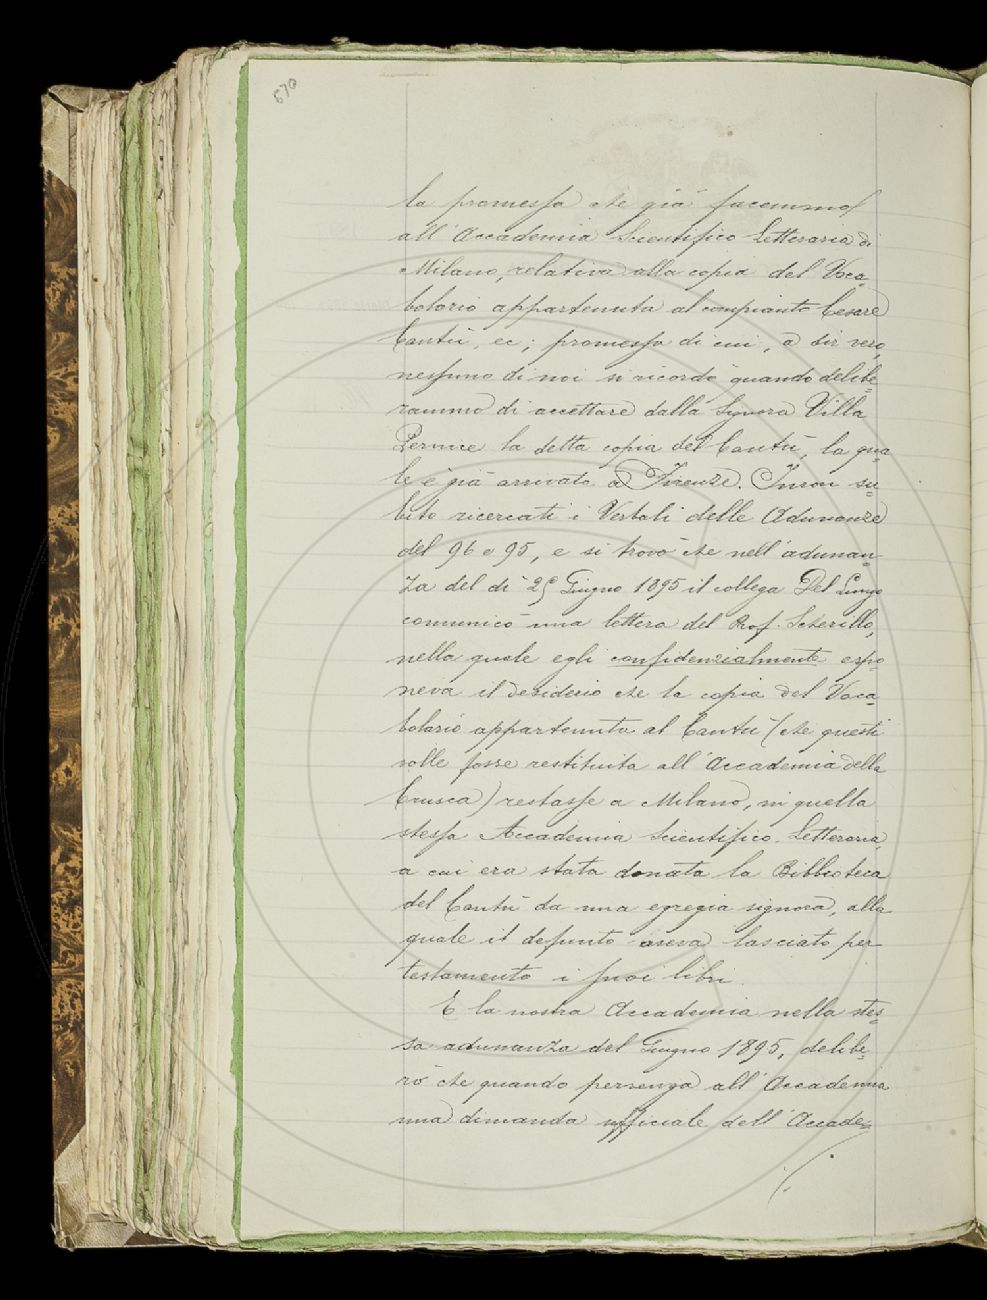 670
la promessa che già facemmo
all'Accademia Scientifico Letteraria di
Milano, relativa alla copia del Voca-
bolario appartenuta al compianto Cesare
Cantù, ec; promessa di cui, a dir vero,
nessuno di noi si ricordò quando delibe-
rammo di accettare dalla Signora Villa
Pernice la detta copia del Cantù, la qua-
le è già arrivata a Firenze. Furon su-
bito ricercati i Verbali delle Adunanze
del 96 e 95, e si trovò che nell'adunan-
za del dì 25 Giugno 1895 il collega Del Lungo
comunicò una lettera del Prof. Scherillo,
nella quale egli confidenzialmente espo-
neva il desiderio che la copia del Voca-
bolario appartenuta al Cantù (che questi
volle fosse restituita all'Accademia della
Crusca) restasse a Milano, in quella
stessa Accademia Scientifico-Letteraria,
a cui era stata donata la Biblioteca
del Cantù da una egregia signora, alla
quale il defunto aveva lasciato per
testamento i suoi libri.
E la nostra Accademia nella stes-
sa adunanza del Giugno 1895, delibe-
rò che quando pervenga all'Accademia
una dimanda ufficiale dell'Accade-